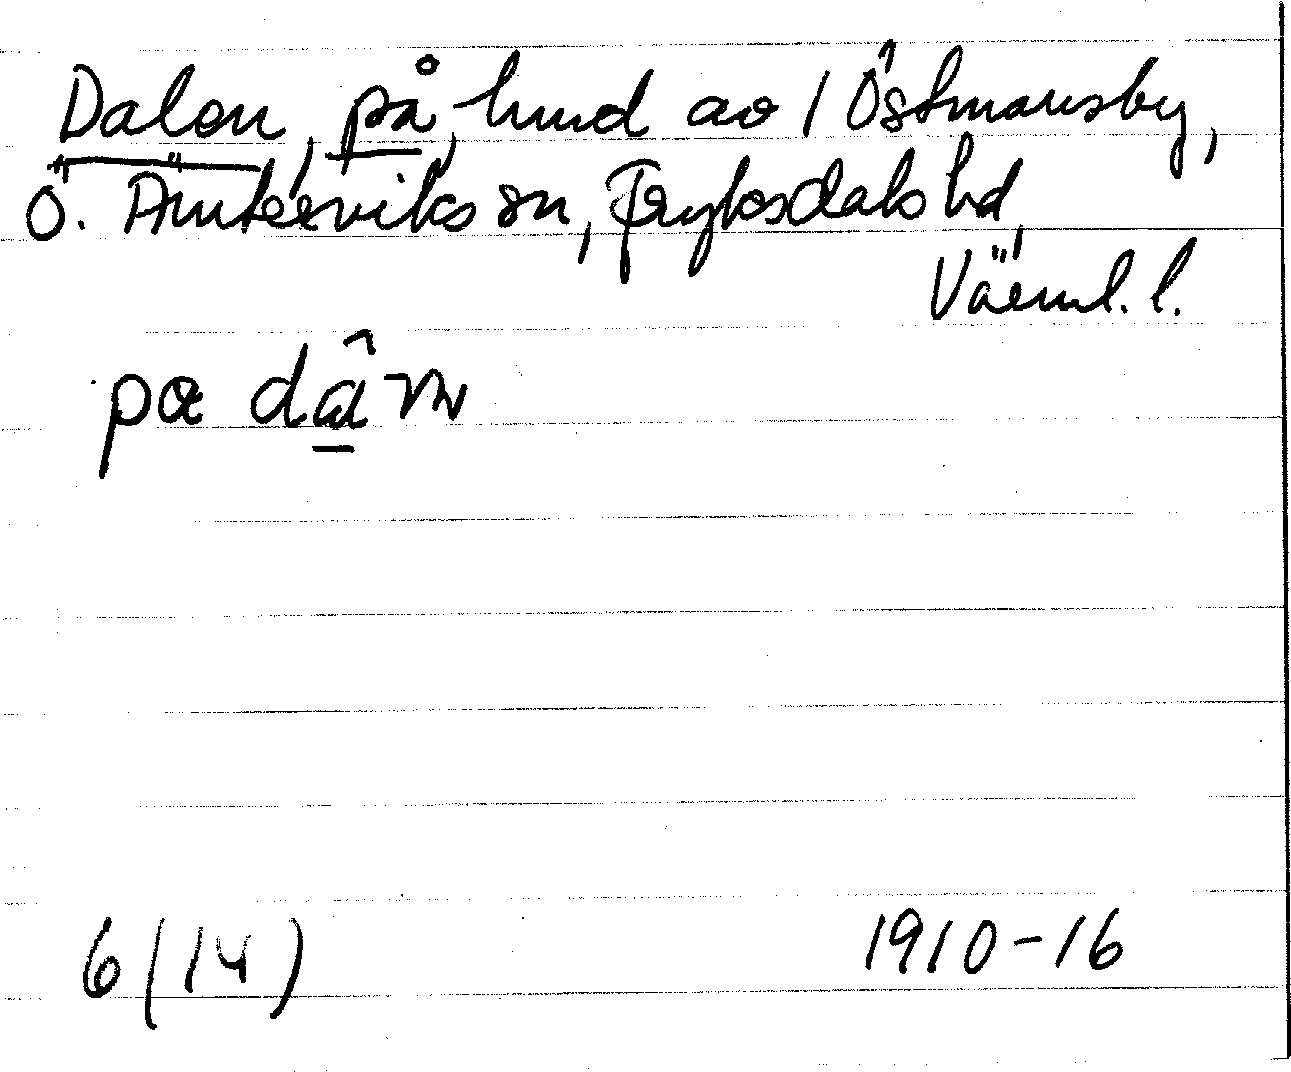 Dalen, på, hmd av 1 Östmansby,
Ö. Ämterviks sn, Fryksdals hd,
Värml. l.
pα dâ
6(14) 1910-16